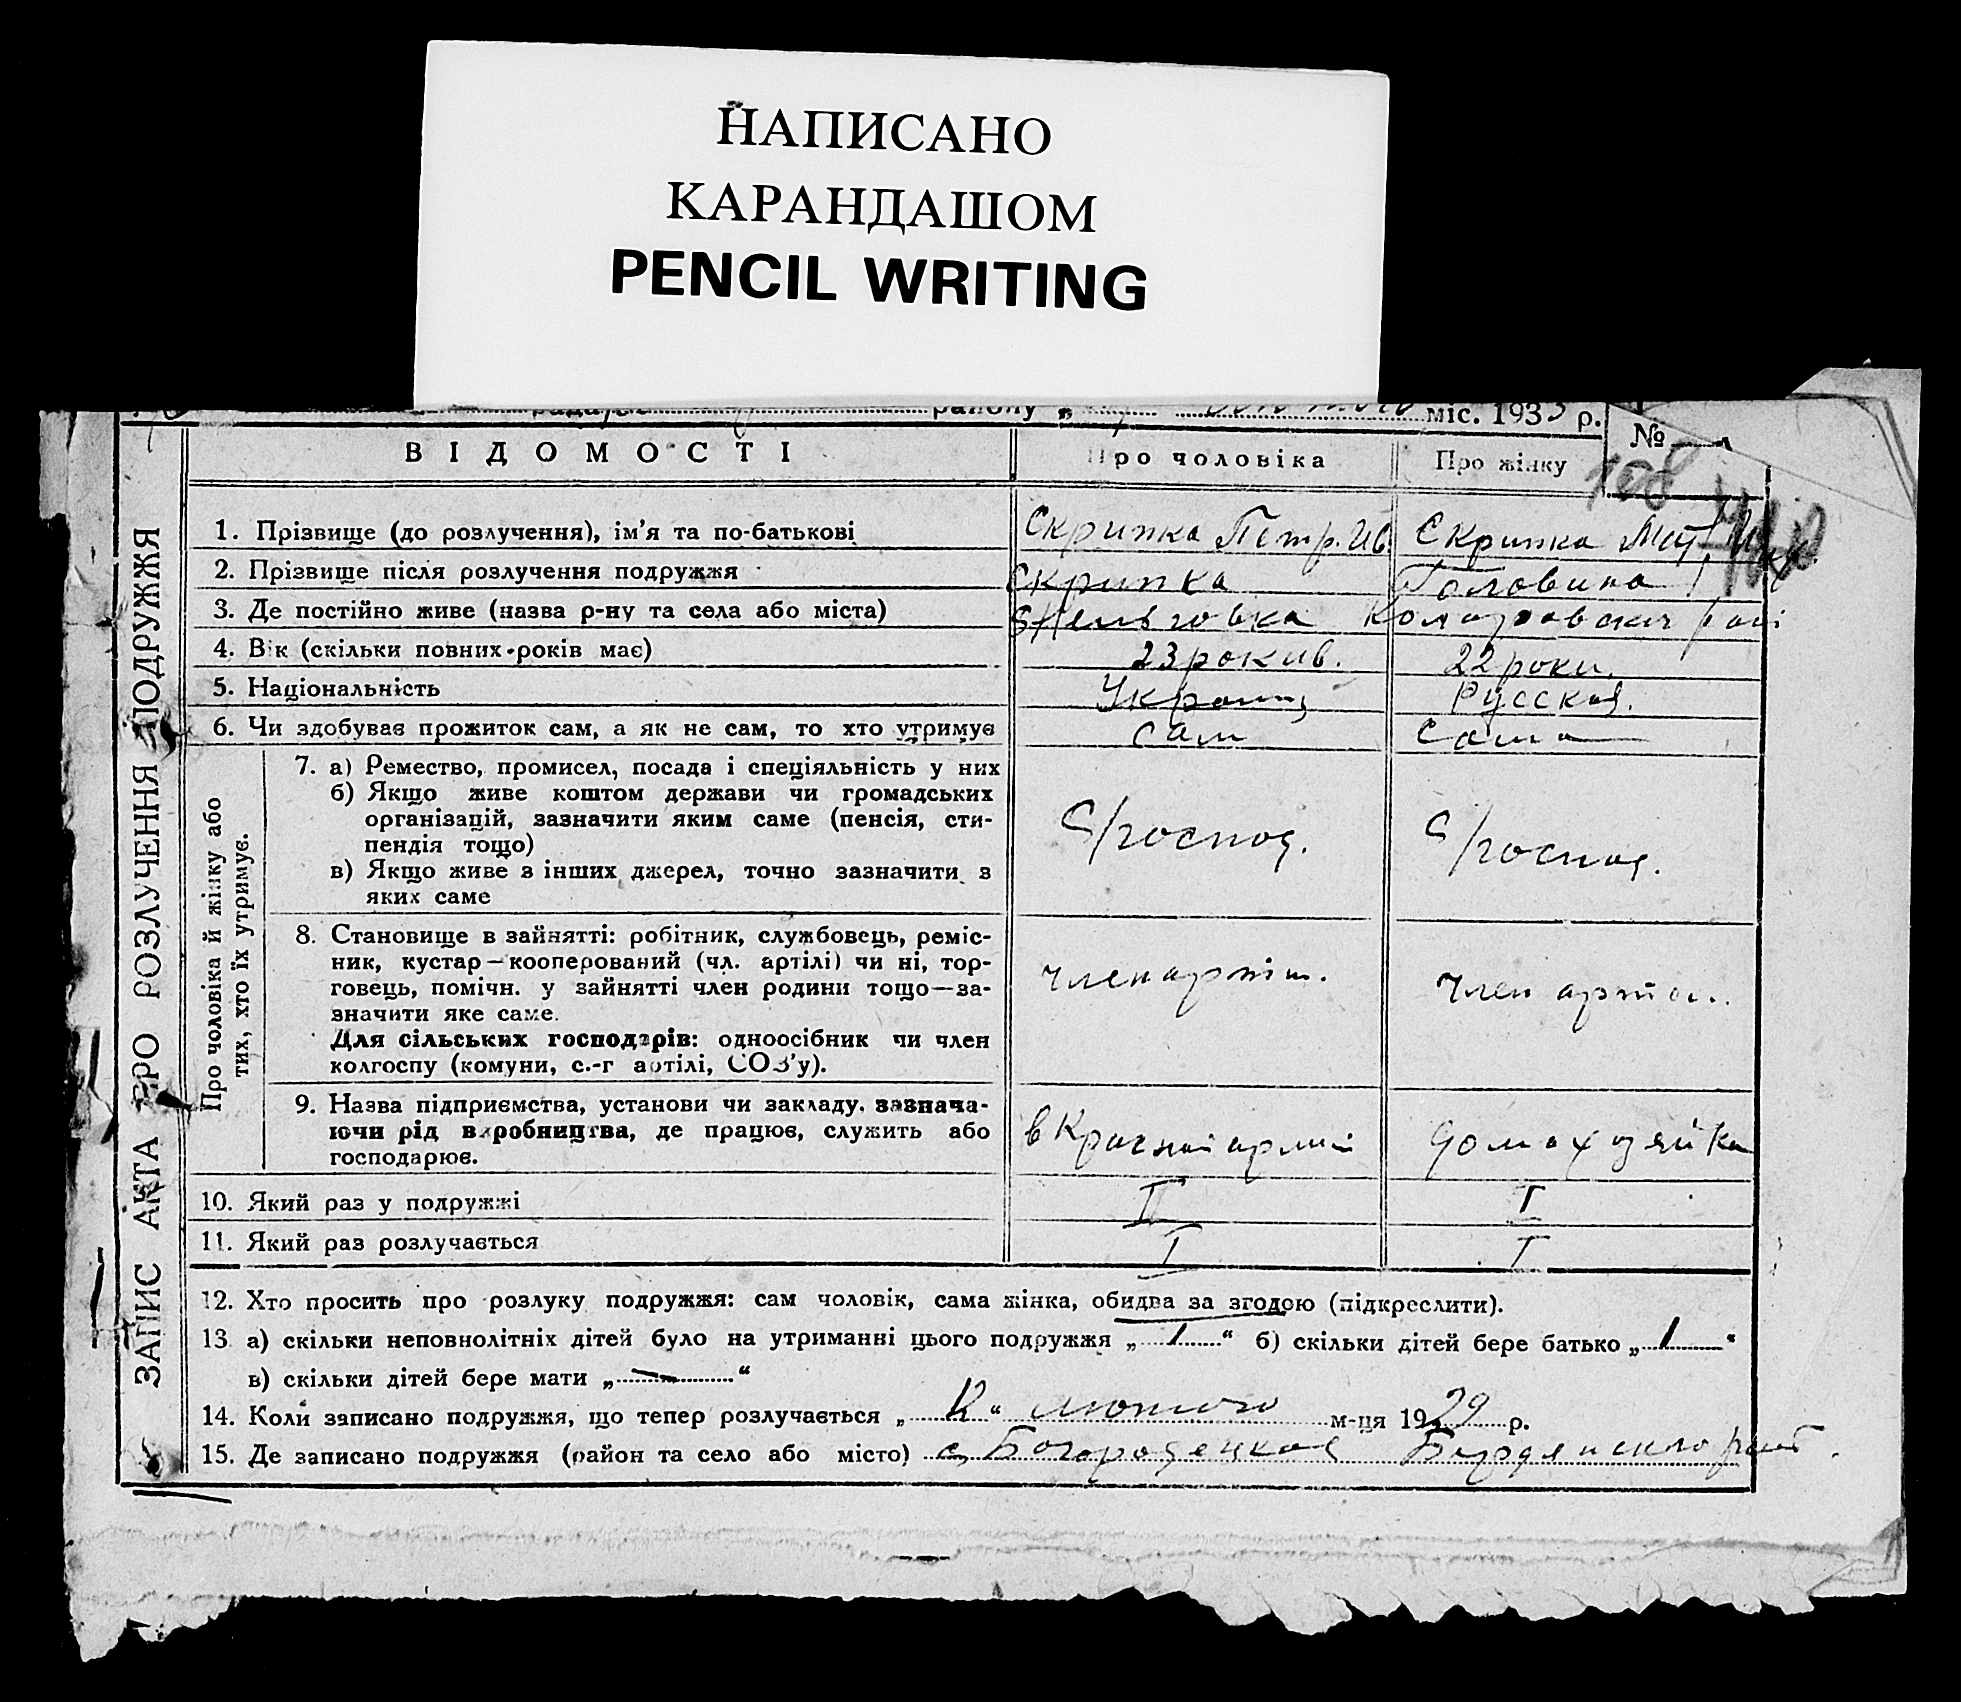 НАПИСАНО
КАРАНДАШОМ
PENCIL WRITING
району „ міс. 1933 р.
№
ВІДОМОСТІ Про чоловіка Про жінку
108
1. Прізвище (до розлучення), ім’я та по-батькові Скрипка Петр. Ив. Скрипка
2. Прізвище після розлучення подружжя Скрипка Головина
3. Де постійно живе (назва р-ну та села або міста)
4. Вік (скільки повних років має) 23 рокив. 22 роки.
5. Національність Украинц Русская.
6. Чи здобуває прожиток сам, а як не сам, то хто утримує сам сама
ЗАПИС АКТА ПРО РОЗЛУЧЕННЯ ПОДРУЖЖЯ
Про чоловіка й жінку або
тих, хто їх утримує.
7. а) Ремество, промисел, посада і спеціяльність у них
б) Якщо живе коштом держави чи громадських
організацій, зазначити яким саме (пенсія, сти-
пендія тощо)
в) Якщо живе з інших джерел, точно зазначити з
яких саме
С/господ. С/господ.
8. Становище в зайнятті: робітник, службовець, реміс-
ник, кустар—кооперований (чл. артілі) чи ні, тор-
говець, помічн. у зайнятті член родини тощо—за-
значити яке саме.
Для сільських господарів: одноосібник чи член
колгоспу (комуни, с.-г артілі, СОЗ’у).
член артіл. член артел.
9. Назва підприємства, установи чи закладу, зазнача-
ючи рід виробництва, де працює, служить або
господарює.
в Красной армии домахозяйка
10. Який раз у подружжі II I
11. Який раз розлучається I I
12. Хто просить про розлуку подружжя: сам чоловік, сама жінка, обидва за згодою (підкреслити).
13 а) скільки неповнолітніх дітей було на утриманні цього подружжя „ 1 “ б) скільки дітей бере батько „ 1 “
в) скільки дітей бере мати „ — “
14. Коли записано подружжя, що тепер розлучається „ 12 “ лютого м-ця 1929 р.
15. Де записано подружжя (район та село або місто) с. Богородецкая Бердянского